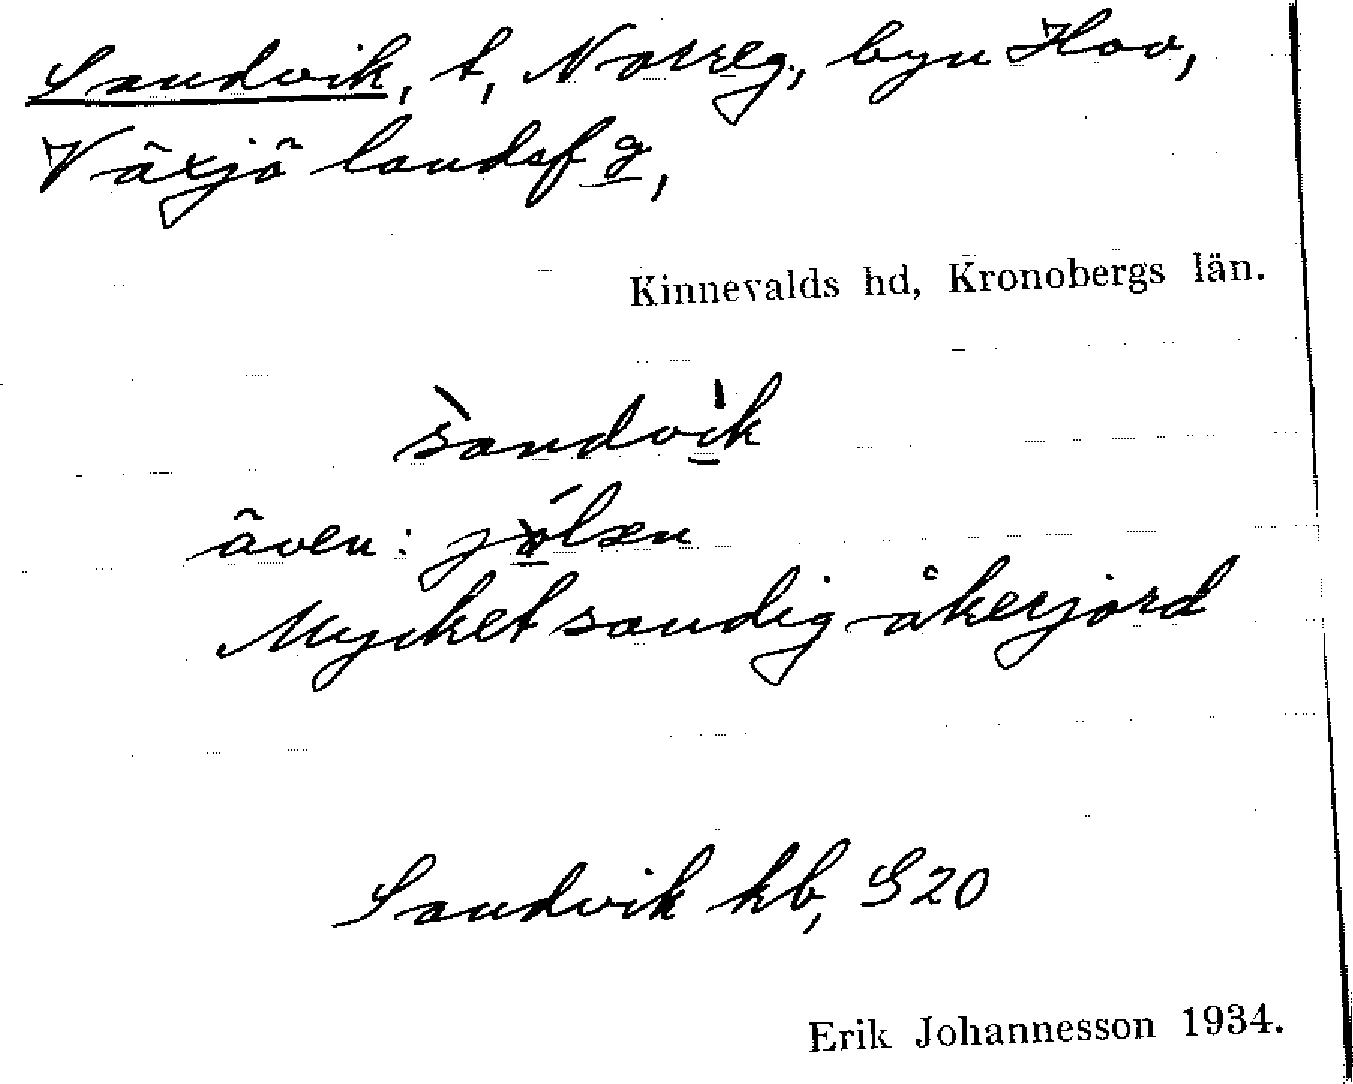 Sandvik, t, Norreg., byn Hov,
Växjö landsf g,
Kinnevalds hd, Kronobergs län.
sandvik
även:
Mycket sandig åkerjord
Sandvik hb, S20
Erik Johannesson 1934.